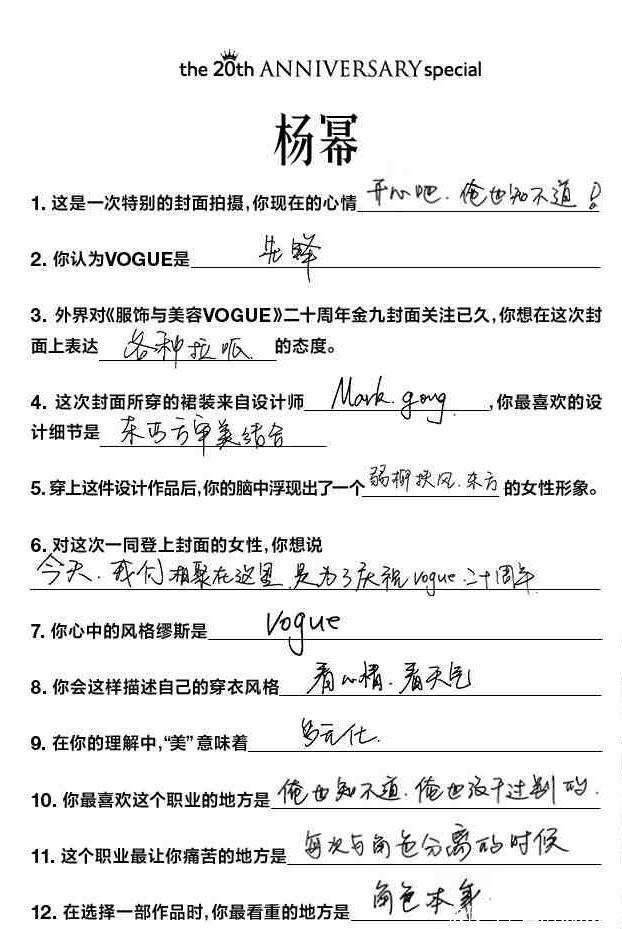 the 20th ANNIVERSARY special
杨幂
1. 这是一次特别的封面拍摄,你现在的心情 开心吧.俺也知不道!
2. 你认为VOGUE是 先锋
3. 外界对《服饰与美容VOGUE》二十周年金九封面关注已久,你想在这次封
面上表达 各种拉呱 的态度。
4. 这次封面所穿的裙装来自设计师 Mark.gong ,你最喜欢的设
计细节是 东西方审美结合
5. 穿上这件设计作品后,你的脑中浮现出了一个 弱柳扶风.东方 的女性形象。
6. 对这次一同登上封面的女性,你想说
今天.我们相聚在这里 是为了庆祝vogue.二十周年
7. 你心中的风格缪斯是 Vogue
8. 你会这样描述自己的穿衣风格 看心情.看天气
9. 在你的理解中,“美”意味着 多元化.
10. 你最喜欢这个职业的地方是 俺也知不道.俺也没干过别的.
11. 这个职业最让你痛苦的地方是 每次与角色分离的时候
12. 在选择一部作品时,你最看重的地方是 角色本身